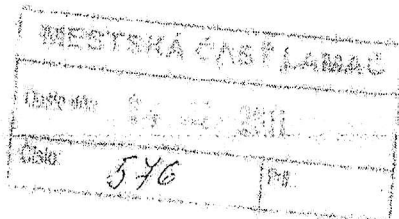 MESTSKÁ ČASŤ LAMAČ
Došlo dňa:
Číslo: 576 Príl.: